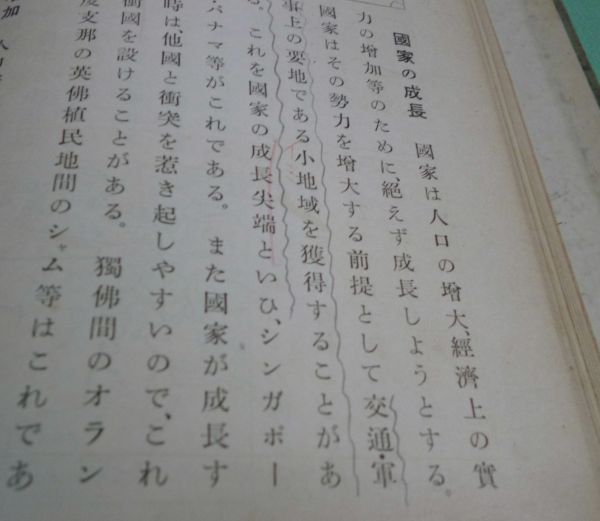 國家の成長　國家は人口の増大、經濟上の實
力の増加等のために、絶えず成長しようとする。
國家はその勢力を増大する前提として交通・軍
事上の要地である小地域を獲得することがあ
る。これを國家の成長尖端といひ、シンガポー
パナマ等がこれである。また國家が成長す
時は、他國と衝突を惹き起しやすいので、これ
衝國を設けることがある。獨佛間のオラン
支那の英佛植民地間のシャム等はこれであ
加